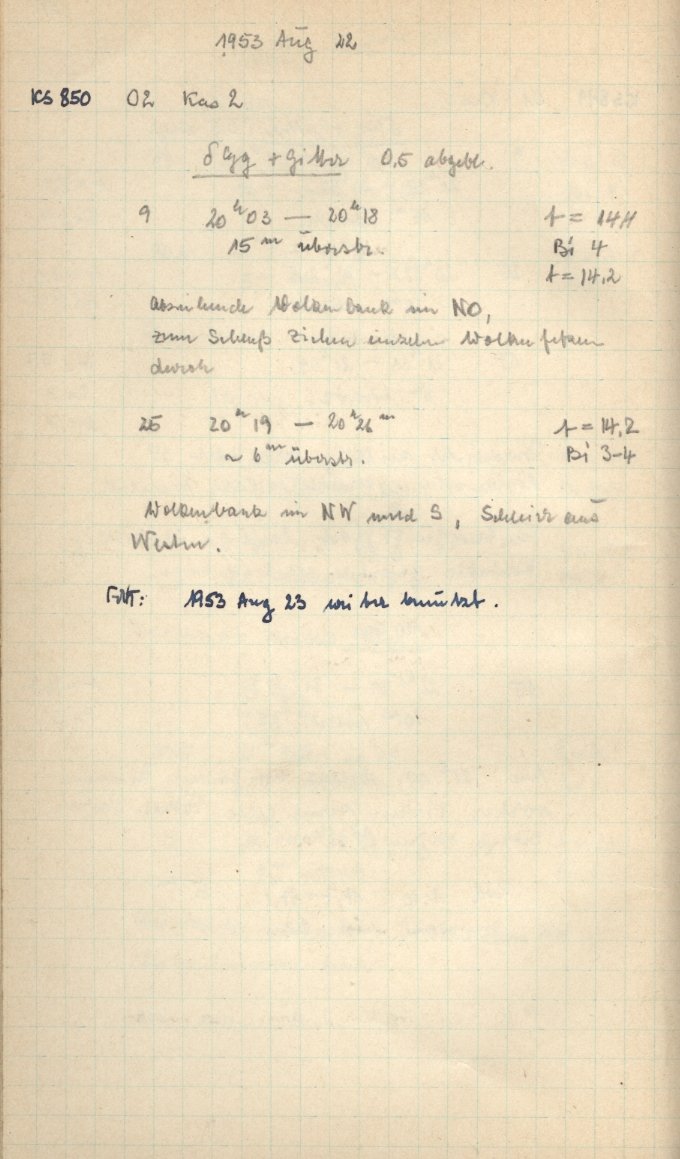 1953 Aug 22
KS 850 O2 Kas 2
δ Cyg + Gitter 0,5 abgebl.
9 20ʰ03 — 20ʰ18 t = 14,4
15ᵐ überstr. Bi 4
t = 14,2
abziehende Wolkenbank im NO,
zum Schluß ziehen einzelne Wolkenfetzen
durch
25 20ʰ19 — 20ʰ26ᵐ t = 14,2
~ 6ᵐ überstr. Bi 3-4
Wolkenbank im NW und S, Schleier aus
Westen.
1953 Aug 23 weiter benützt.